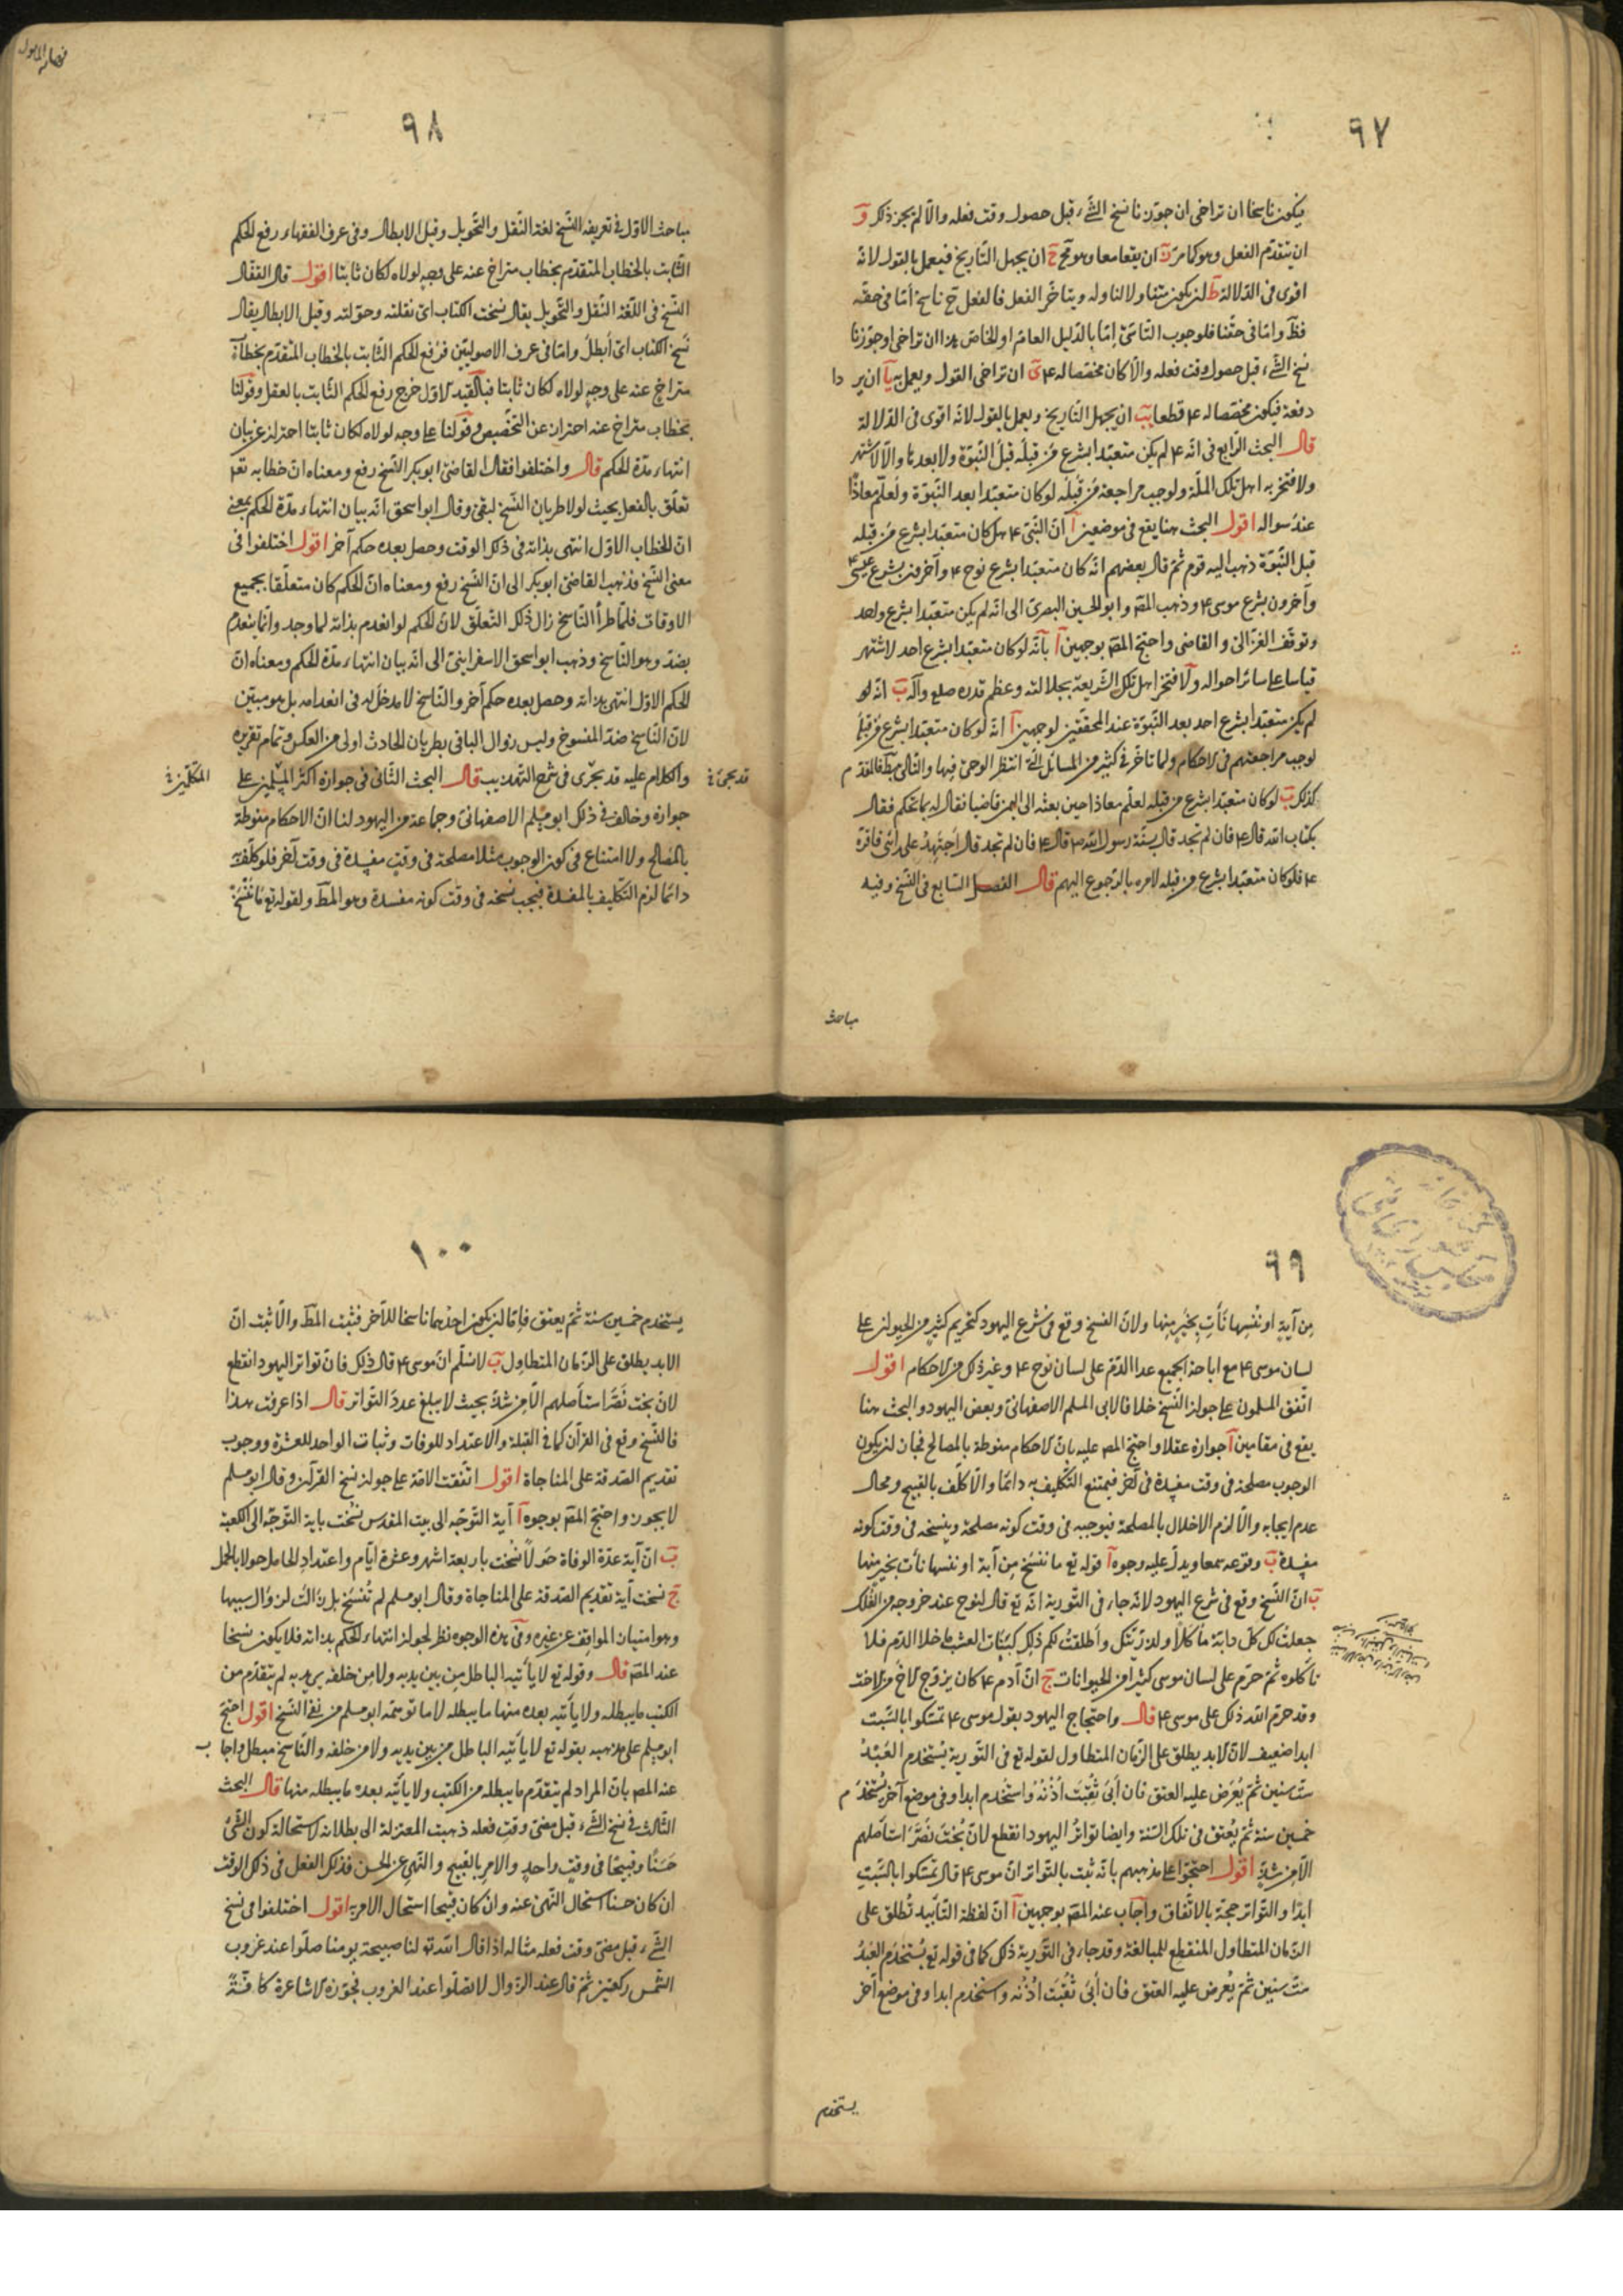 ٩٧
يكون ناسخا ان تراخى ان جوزنا نسخ الشّىء قبل حصول وقت فعله والّا لم يجز ذلك وَ
ان يتقدّم الفعل وهو كما مرّ زَ ان يقعا معا وهو مح حَ ان يجهل التّاريخ فيعمل بالقول لانّه
اقوى فى الدّلالة طَ ان يكون متناولا لنا وله ويتاخّر الفعل فالفعل ح ناسخ امّا فى حقّه
فظَ وامّا فى حقّنا فلوجوب التاسّى امّا بالدّليل العام او الخاص هذا ان تراخى او جوّزنا
نسخ الشّىء قبل حصول وقت فعله والّا كان مخصّصا له ع ىَ ان تراخى القول ويعمل به ياَ ان ير دا
دفعة فيكون مخصّصا له ع قطعا يبَ ان يجهل التّاريخ ويعمل بالقول لانّه اقوى فى الدّلالة
قال البحث الرّابع فى انّه ع لم يكن متعبّدا بشرع مَن قبله قبل النّبوّة ولا بعدها والّا لاشتهر
ولافتخر به اهل تلك الملّة ولوجب مراجعة مَن قبله لو كان متعبّدا بعد النّبوّة ولعلّم معاذا
عند سواله اقول البحث هنا يقع فى موضعين اَ انّ النّبى ع هل كان متعبّدا بشرع من قبله
قبل النّبوّة ذهب اليه قوم ثمّ قال بعضهم انّه كان متعبّدا بشرع نوح ع وآخرون بشرع عيسى ع
وآخرون بشرع موسى ع وذهب المصَ وابو الحسين البصرىّ الى انّه لم يكن متعبّدا بشرع واحد
وتوقّف الغزّالىّ والقاضى واحتجّ المصَ بوجهين اَ بانّه لو كان متعبّدا بشرع احد لاشتهر
قياسا على سائر احواله ولَافتخر اهل تلك الشّريعة بجلالته وعظم قدره صلع وآله بَ انّه لو
لم يكن متعبّدا بشرع احد بعد النّبوّة عند المحقّقين لوجهين اَ انّه لو كان متعبّدا بشرع من قبله
لوجب مراجعتهم فى الاحكام ولما تاخّر فى كثير من المسائل الّتى انتظر الوحى فيها والتّالى بطَ فالمقدّم
كذلك بَ لو كان متعبّدا بشرع من قبله لعلّم معاذا حين بعثه الى اليمن قاضيا فقال له بما تحكم فقال
بكتاب الله قال ع فان لم تجد قال بسنّة رسول الله ص قال ع فان لم تجد قال اَجتهدُ على رائى فاقرّه
ع فلو كان متعبّدا بشرع من قبله لامره بالرّجوع اليهم قال الفصل السّابع فى النّسخ وفيه
مباحث
٩٨
مباحث الاوّل فى تعريفه النّسخ لغة النّقل والتّحويل وقيل الابطال وفى عرف الفقهاء رفع الحكم
الثّابت بالخطاب المتقدّم بخطاب متراخ عنه على وجه لولاه لكان ثابتا اقول قال القفّال
النّسخ فى اللّغة النّقل والتّحويل يقال نسخت الكتاب اى نقلته وحوّلته وقيل الابطال يقال
نسخ الكتاب اى اُبطل وامّا فى عرف الاصوليّين فرفع الحكم الثّابت بالخطاب المتقدّم بخطاب
متراخ عنه على وجه لولاه لكان ثابتا فبالقيد الاوّل خرج رفع الحكم الثّابت بالعقل وقولنا
بخطاب متراخ عنه احتراز عن التّخصيص وقولنا على وجه لولاه لكان ثابتا احتراز عن بيان
انتهاء مدّة الحكم قال واختلفوا فقال القاضى ابو بكر النّسخ رفع ومعناه انّ خطابه تع
تعلّق بالفعل بحيث لولا طريان النّسخ لبقى وقال ابو اسحق انّه بيان انتهاء مدّة الحكم بمعنى
انّ الخطاب الاوّل انتهى بذاته فى ذلك الوقت وحصل بعده حكم آخر اقول اختلفوا فى
معنى النّسخ فذهب القاضى ابو بكر الى انّ النّسخ رفع ومعناه انّ الحكم كان متعلّقا بجميع
الاوقات فلمّا طرأ النّاسخ زال ذلك التّعلّق لانّ الحكم لو انعدم بذاته لما وجد وانّما ينعدم
بضدّه وهو النّاسخ وذهب ابو اسحق الاسفراينىّ الى انّه بيان انتهاء مدّة الحكم ومعناه انّ
الحكم الاوّل انتهى بذاته وحصل بعده حكم آخر والنّاسخ لا مدخل له فى انعدامه بل هو مبيّن
لانّ النّاسخ ضدّ المنسوخ وليس زوال الباقى بطريان الحادث اولى من العكس وتمام تقريره
والكلام عليه قد يجرّى فى شرح التّهذيب قال البحث الثّانى فى جوازه اكثر المسلمين على
جوازه وخالف فى ذلك ابو مسلم الاصفهانىّ وجماعة من اليهود لنا انّ الاحكام منوطة
بالمصالح ولا امتناع فى كون الوجوب مثلا مصلحة فى وقت مفسدة فى وقت آخر فلو كلّف به
دائما لزم التّكليف بالمفسدة فيجب نسخه فى وقت كونه مفسدة وهو المطَ ولقوله تع مَا نَنْسَخْ
٩٩
مِن آيةٍ او نُنسِها نَأتِ بِخيرٍ مِنها ولانّ النسخ وقع فى شرع اليهود كتحريم كثير من الحيوان على
لسان موسى ع مع اباحة الجميع عدا الدّم على لسان نوح ع وغير ذلك من الاحكام اقول
اتّفق المسلمون على جواز النّسخ خلافا لابى المسلم الاصفهانىّ وبعض اليهود والبحث هنا
يقع فى مقامين اَ جوازه عقلا واحتجّ المصَ عليه بانّ الاحكام منوطة بالمصالح فجاز ان يكون
الوجوب مصلحة فى وقت مفسدة فى آخر فيمتنع التّكليف به دائما والّا كلّف بالقبيح ومحال
عدم ايجابه والّا لزم الاخلال بالمصلحة فيوجبه فى وقت كونه مصلحة وينسخه فى وقت كونه
مفسدة بَ وقوعه سمعا ويدلّ عليه وجوه اَ قوله تع ما ننسَخ مِن آية او ننسها نأت بخير منها
بَ انّ النّسخ وقع فى شرع اليهود لانّه جاء فى التّورية انّه تع قال لنوح عند خروجه من الفلك
جعلتُ لك كلّ دابة مأكلا ولذرّيّتك وأطلقتُ لكم ذلك كنبات العشب ما خلا الدّم فلا
تأكلوه ثمّ حرّم على لسان موسى كثيرا من الحيوانات جَ انّ آدم ع كان يزوّج الاخ من الاخت
وقد حرّم الله ذلك على موسى ع قال واحتجاج اليهود بقول موسى ع تمسّكوا بالسّبت
ابدا ضعيف لانّ الابد يطلق على الزّمان المتطاول لقوله تع فى التّورية يُستخدم العَبْدُ
ستّ سنين ثمّ يُعرَض عليه العتق فان أبى ثُقِبَت أذُنُهُ واستُخدم ابدا وفى موضع آخر يُستخدَم
خمسين سنة ثمّ يُعتق فى تلك السّنة وايضا تواترُ اليهود انقطع لانّ بُختَ نَصَّرَ استأصلهم
الّا من شذّ اقول احتجّوا على مذهبهم بانّه ثبت بالتّواتر انّ موسى ع قال تمسّكوا بالسّبتِ
ابدًا والتّواتر حجّة بالاتّفاق واجاب عنه المصَ بوجهين اَ انّ لفظة التّأبيد تُطلق على
الزّمان المتطاول المنقطع للمبالغة وقد جاء فى التّورية ذلك كما فى قوله تع يُستخدَم العَبدُ
ستّ سنين ثمّ يُعرض عليه العتق فان أبى ثُقِبَت اُذُنُه واستخدم ابدا وفى موضع آخر
يستخدم
١٠٠
يستخدم خمسين سنة ثمّ يعتق فامّا ان يكون احدهما ناسخا للآخر فثبت المطَ والّا ثبت انّ
الابد يطلق على الزّمان المتطاول بَ لا نسلّم انّ موسى ع قال ذلك فانّ تواتر اليهود انقطع
لانّ بخت نَصَّر استأصلهم الّا من شذّ بحيث لا يبلغ عدد التّواتر قال اذا عرفت هذا
فالنّسخ وقع فى القرآن كما فى القبلة والاعتداد للوفات وثبات الواحد للعشرة ووجوب
تقديم الصّدقة على المناجاة اقول اتّفقت الامّة على جواز نسخ القرآن وقال ابو مسلم
لا يجوز واحتجّ المصَ بوجوه اَ آية التّوجّه الى بيت المقدس نُسخت باية التّوجّه الى الكعبة
بَ انّ آية عدّة الوفاة حَولاً نُسخت باربعة اشهر وعشرة ايّام واعتداد الحامل حولا بالحمل
جَ نسخت آية تقديم الصّدقة على المناجاة وقال ابو مسلم لم تُنسَخ بل زالت لزوال سببها
وهو امتياز الموافق عن غيره وفى هذه الوجوه نظر لجواز انتهاء الحكم بذاته فلا يكون نسخا
عند المصَ قال وقوله تع لا يأتيه الباطل مِن بين يديه ولا مِن خلفه يريد به لم يتقدّم من
الكتب ما يبطله ولا يأتيه بعده منها ما يبطله لا ما توهّمه ابو مسلم من نفى النّسخ اقول احتجّ
ابو مسلم على مذهبه بقوله تع لا يأتيه الباطل من بين يديه ولا من خلفه والنّاسخ مبطل واجاب
عنه المصَ بانّ المراد لم يتقدّم ما يبطله من الكتب ولا يأتيه بعده ما يبطله منها قال البحث
الثّالث فى نسخ الشّىء قبل مضىّ وقت فعله ذهبت المعتزلة الى بطلانه لاستحالة كون الشّىء
حَسَنًا وقبيحًا فى وقت واحد والامر بالقبيح والنّهى عن الحسن فذلك الفعل فى ذلك الوقت
ان كان حسنا استحال النّهى عنه وان كان قبيحا استحال الامر به اقول اختلفوا فى نسخ
الشّىء قبل مضىّ وقت فعله مثاله اذا قال الله تع لنا صبيحة يومنا صلّوا عند غروب
الشّمس ركعتين ثمّ قال عند الزّوال لا تصلّوا عند الغروب فجوّزه الاشاعرة كافّة